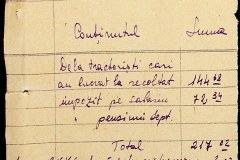 Conținutul Suma
De la tractoriști cari
au lucrat la recoltat 144 68
impozit pe salarii 72 34
" pensiuni Sept.
Total 217 02